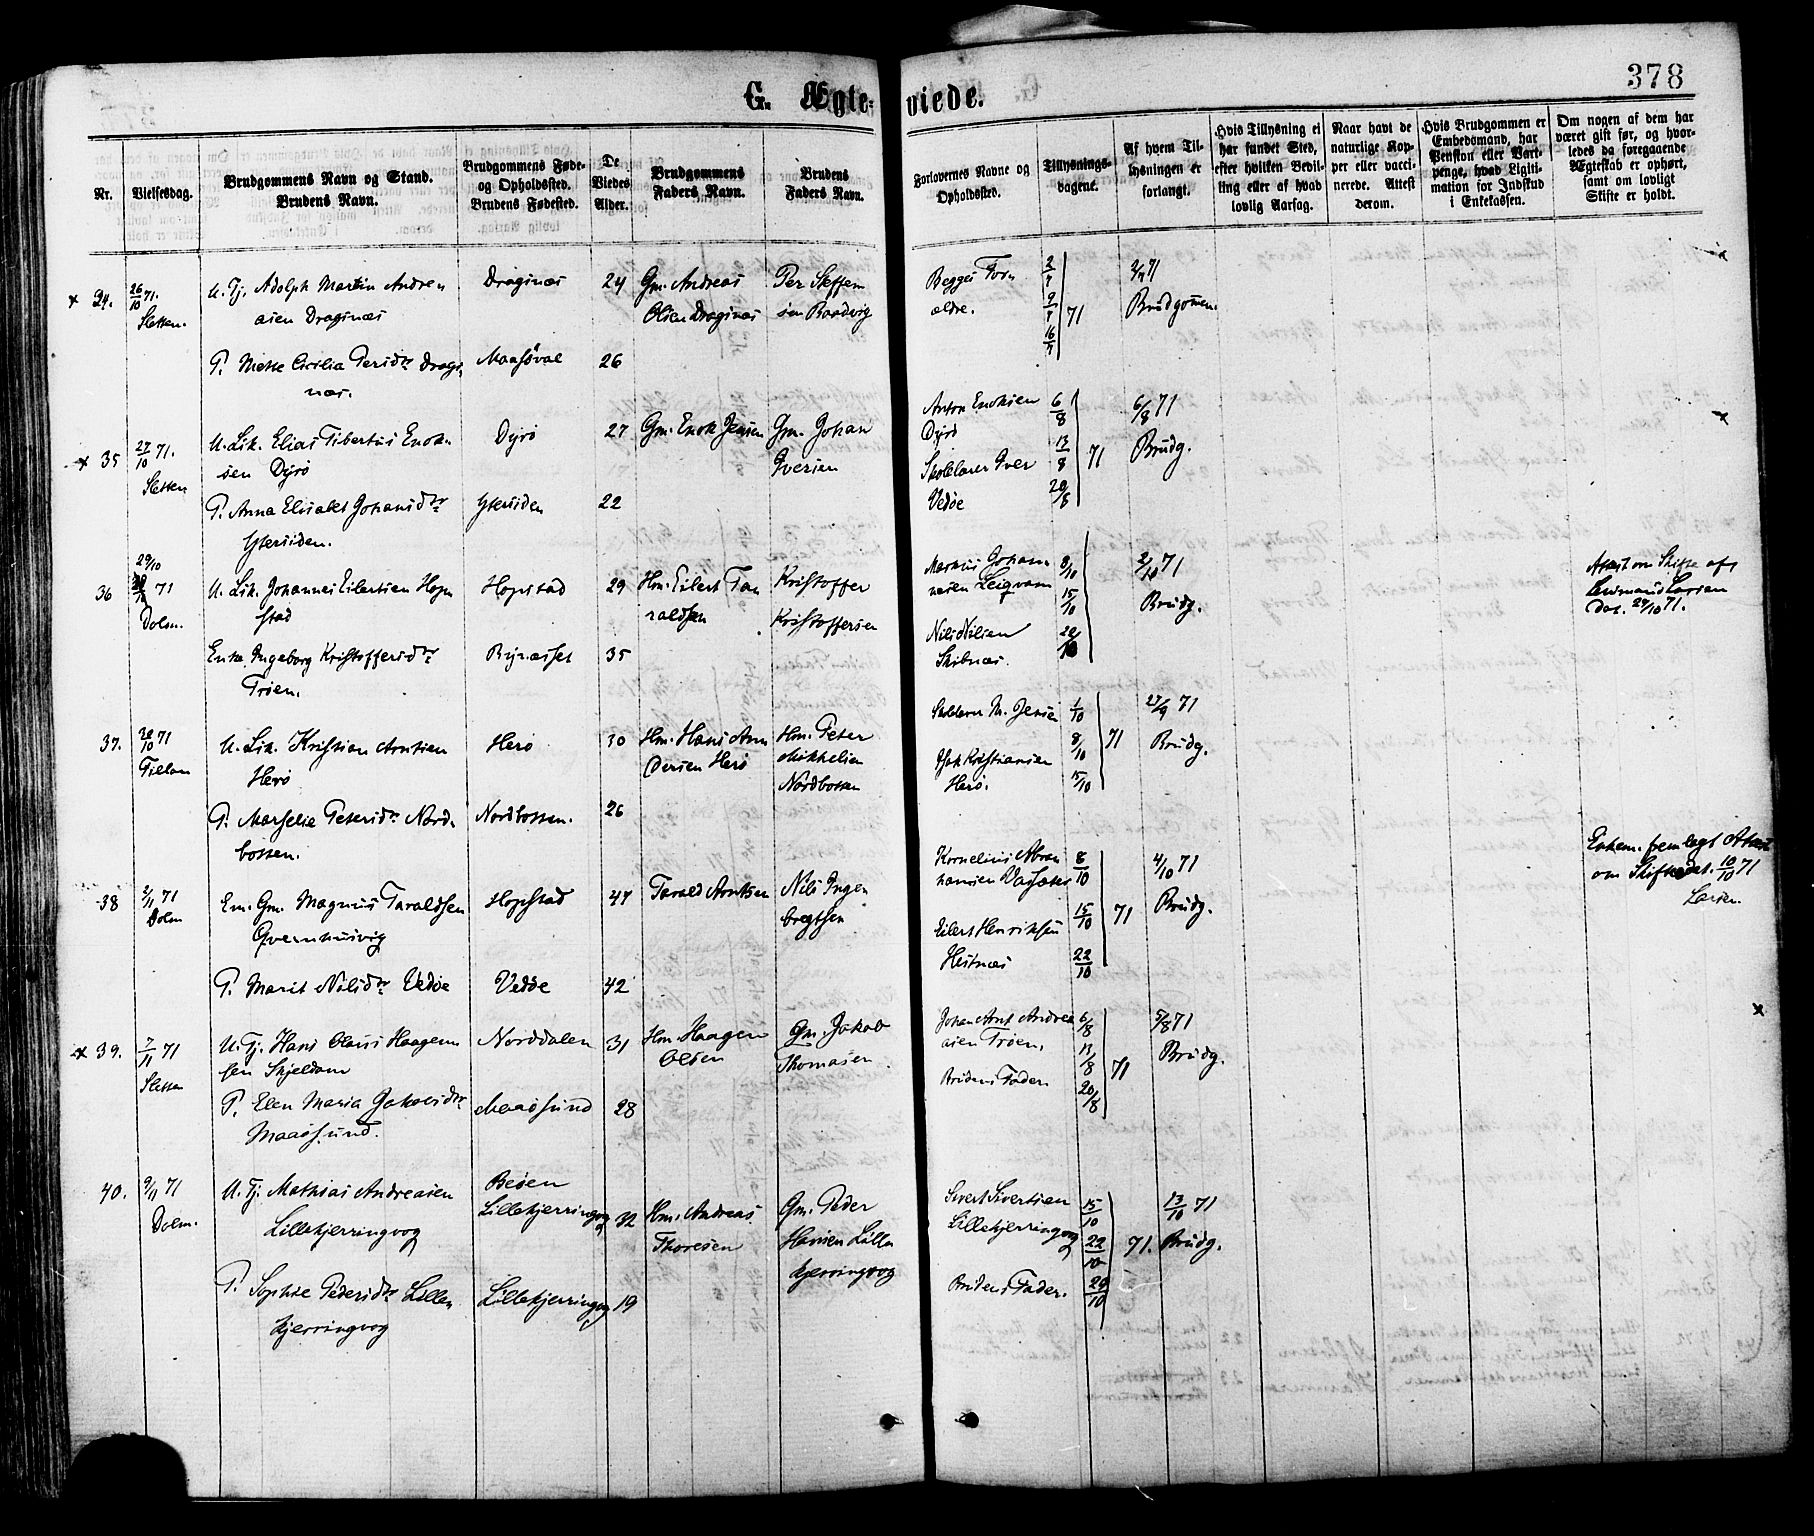 378
G. Ægte-
viede.
Nr.
Vielsesdag.
Brudgommens Navn og Stand.
Brudens Navn.
Brudgommens Føde-
og Opholdssted.
Brudens Fødested.
De
Viedes
Alder.
Brudgommens
Faders Navn.
Brudens
Faders Navn.
Forlovernes Navne og
Opholdssted.
Tillysnings-
dagene.
Af hvem Til-
lysningen er
forlangt.
Hvis Tillysning ei
har fundet Sted,
efter hvilken Bevil-
ling eller af hvad
lovlig Aarsag.
Naar havt de
naturlige Kop-
per eller vacci-
nerede. Attest
derom.
Hvis Brudgommen er
Embedsmand, har
Pension eller Vart-
penge, hvad Ligiti-
mation for Indskud
i Enkekassen.
Om nogen af dem har
været gift før, og hvor-
ledes da foregaaende
Ægteskab er ophørt,
samt om lovligt
Skifte er holdt.
26/10 71.
Sletten.
U. Tj. Adolph Martin Andre
asen Dragsnæs
Dragsnæs
24
Gm. Andreas
Olsen Dragsnæs
Per Steffen
sen Baadvig
Begges For
ældre.
2/7
9/7
16/7
71
2/7 71
Brudgommen.
P. Mette Cicilia Persdtr Drags
næs.
Maasøval
26
x 35
27/10 71.
Sletten
U. Lik. Elias Tibertus Enok
sen Dyrø
Dyrø
27
Gm. Enok Jensen
Gm. Johan
Iversen
Anton Enoksen
Dyrø
Skolelærer Iver
Vedøe
6/8
13/8
20/8
71
6/8 71
Brudg.
P. Anna Elisabet Johansdtr
Ytersiden.
Ytersiden
22
36
29/10
71
Dolm.
U. Lik. Johannes Eilertsen Hop
stad
Hopstad
29
Hm. Eilert Ta
raldsen
Kristoffer
Kristoffersen
Markus Johan
nesen Leiqvam
Nils Nilsen
Skibnæs.
8/10
15/10
22/10
2/10 71
Brudg.
Attest om Skifte af
Lensmand Larsen
Dat. 24/10 71.
Enke Ingeborg Kristoffersdtr
Trøen.
Bynæsset
35
37.
30/10 71
Tillem
U. Lik. Kristian Arntsen
Herø
Herø
30
Hm. Hans An
dersen Herø
Hm. Peter
Mikkelsen
Nordbotten
Skolelærer M. Jensen
Isak Kristiansen
Herø.
1/10
8/10
15/10
71
27/9 71
Brudg.
P. Marselie Petersdtr Nord
botten.
Nordbotten.
26
38
2/11 71
Dolm
Em. Gm. Magnus Taraldsen
Qvernhusvig
Hopstad
47
Tarald Arntsen
Nils Inge
bregtsen
Kornelius Abra
hamsen Vassæter
Eilert Henriksen
Hestnæs
8/10
15/10
22/10
71
4/10 71
Brudg.
Enkem. fremlagt Attest
om Skifte dat. 10/10 71
Larsen.
P. Marit Nilsdtr Vedøe
Vedøe
42
x 39.
7/11 71
Sletten
U. Tj. Hans Olaus Haagen
sen Skjeldam
Norddalen
31
Hm. Haagen
Olsen
Gm. Jakob
Thomasen
Johan Arnt Andrea
sen Trøen,
Brudens Fader
6/8
13/8
20/8
71
5/8 71
Brudg.
P. Elen Maria Jakobsdtr
Maasund.
Maasund
28
40.
9/11 71
Dolm.
U. Tj. Mathias Andreasen
Lillekjerringvog
Beøen
Lillekjerringvog
32
Hm. Andreas
Thoresen
Gm. Peder
Hansen Lille
kjerringvog
Sivert Sivertsen
Lillekjerringvog
Brudens Fader.
15/10
22/10
29/10
71.
13/10 71
Brudg.
P. Sophie Pedersdtr Lille
kjerringvog
Lillekjerringvog
19